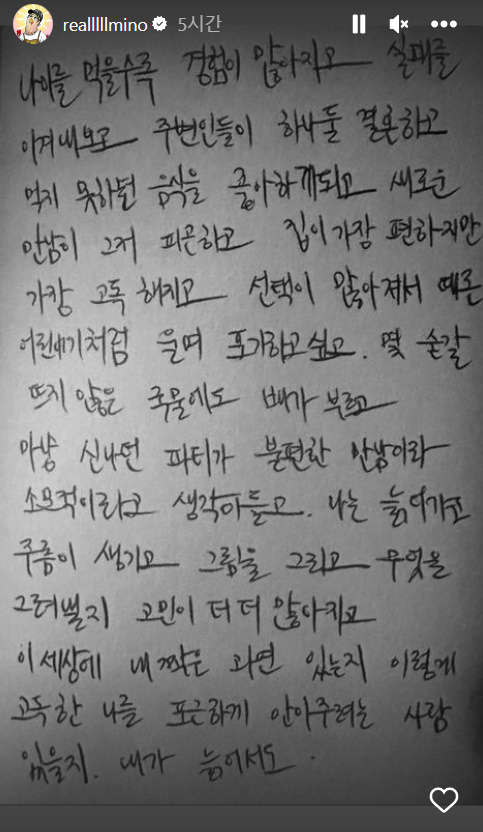 realllllmino 5시간
나이를 먹을수록 경험이 많아지고 실패를
이겨내보고 주변인들이 하나둘 결혼하고
먹지 못하던 음식을 좋아하게되고 새로운
만남이 그저 피곤하고 집이 가장 편하지만
가장 고독해지고 선택이 많아져서 때론
어린애기처럼 울며 포기하고싶고. 몇 숟갈
뜨지 않은 국물에도 배가 부르고
마냥 신나던 파티가 불편한 만남이라
소모적이라고 생각이들고. 나는 늙어가고
주름이 생기고 그림을 그리고 무엇을
그려낼지 고민이 더 더 많아지고
이 세상에 내 짝은 과연 있는지 이렇게
고독한 나를 포근하게 안아주려는 사람
있을지. 내가 늙어서도.